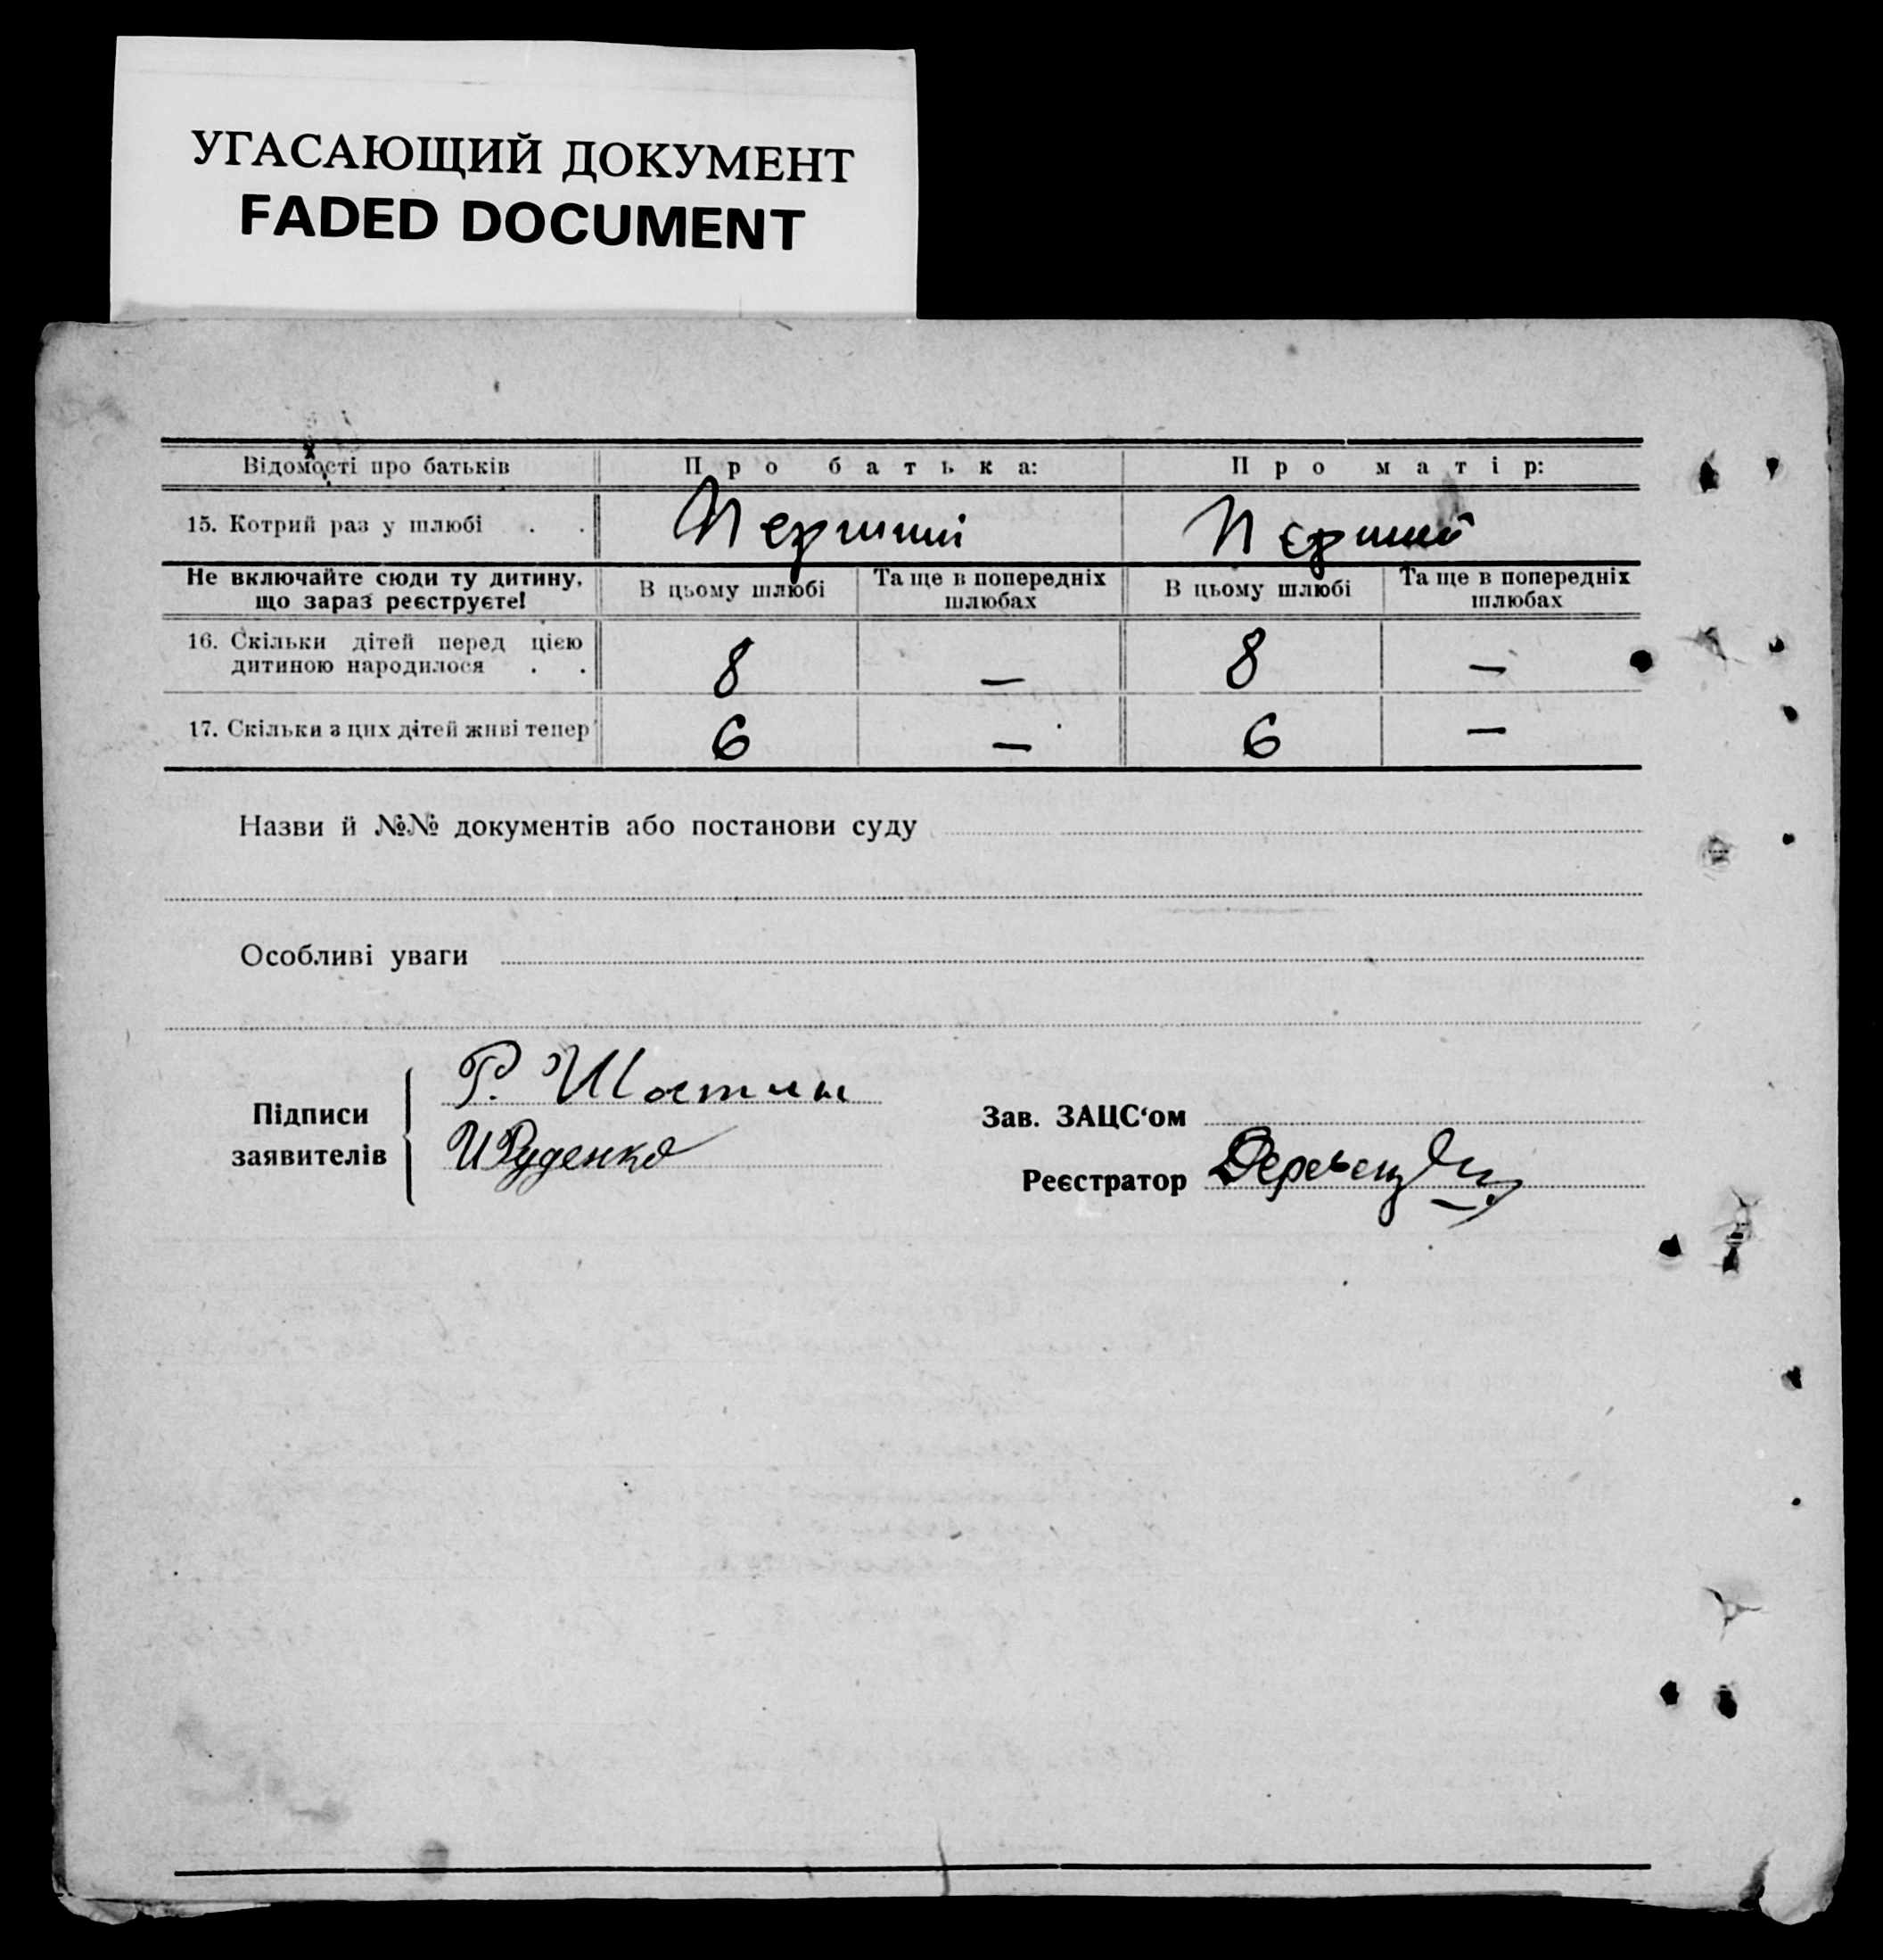 УГАСАЮЩИЙ ДОКУМЕНТ
FADED DOCUMENT
Відомості про батьків Про батька: Про матір:
15. Котрий раз у шлюбі . . Перший Перший
Не включайте сюди ту дитину, що зараз реєструєте! В цьому шлюбі Та ще в попередніх шлюбах В цьому шлюбі Та ще в попередніх шлюбах
16. Скільки дітей перед цією
дитиною народилося . . 8 — 8 —
17. Скільки з цих дітей живі тепер 6 — 6 —
Назви й №№ документів або постанови суду
Особливі уваги
Підписи заявителів
Р.
И Руденко
Зав. ЗАЦС‘ом
Реєстратор